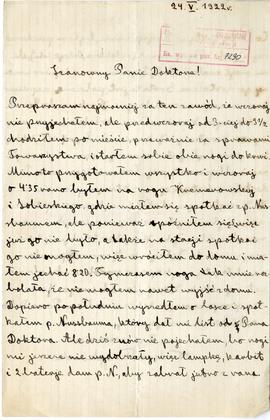 24. V. 1922 r.
Szanowny Panie Doktorze!
Przepraszam najmocniej za ten zawód, że wczoraj
nie przyjechałem, ale przedwczoraj od 3-ciej do 9½
chodziłem po mieście, przeważnie za sprawami
Towarzystwa, i starłem sobie obie nogi do krwi.
Mimoto przygotowałem wszystko i wczoraj
o 4:35 rano byłem na rogu
i Sobieskiego, gdzie miałem się spotkać z p. Nuss-
baumem, ale ponieważ spóźniłem się, więc
już go nie było, a także na stacji spotkać
go nie mogłem, więc wróciłem do domu i mia-
łem jechać 820. Tymczasem noga tak mnie roz-
bolała, że nie mogłem nawet wyjść z domu.
Dopiero po południu wyszedłem o lasce i spot-
kałem p. Nussbauma, który dał mi list od Pana
Doktora. Ale dziś znów nie pojechałem, bo nogi
mi jeszcze nie wydobrzały, więc lampkę, karbit
i 2 baterje dam p. N., aby zabrał jutro z rana.
7290